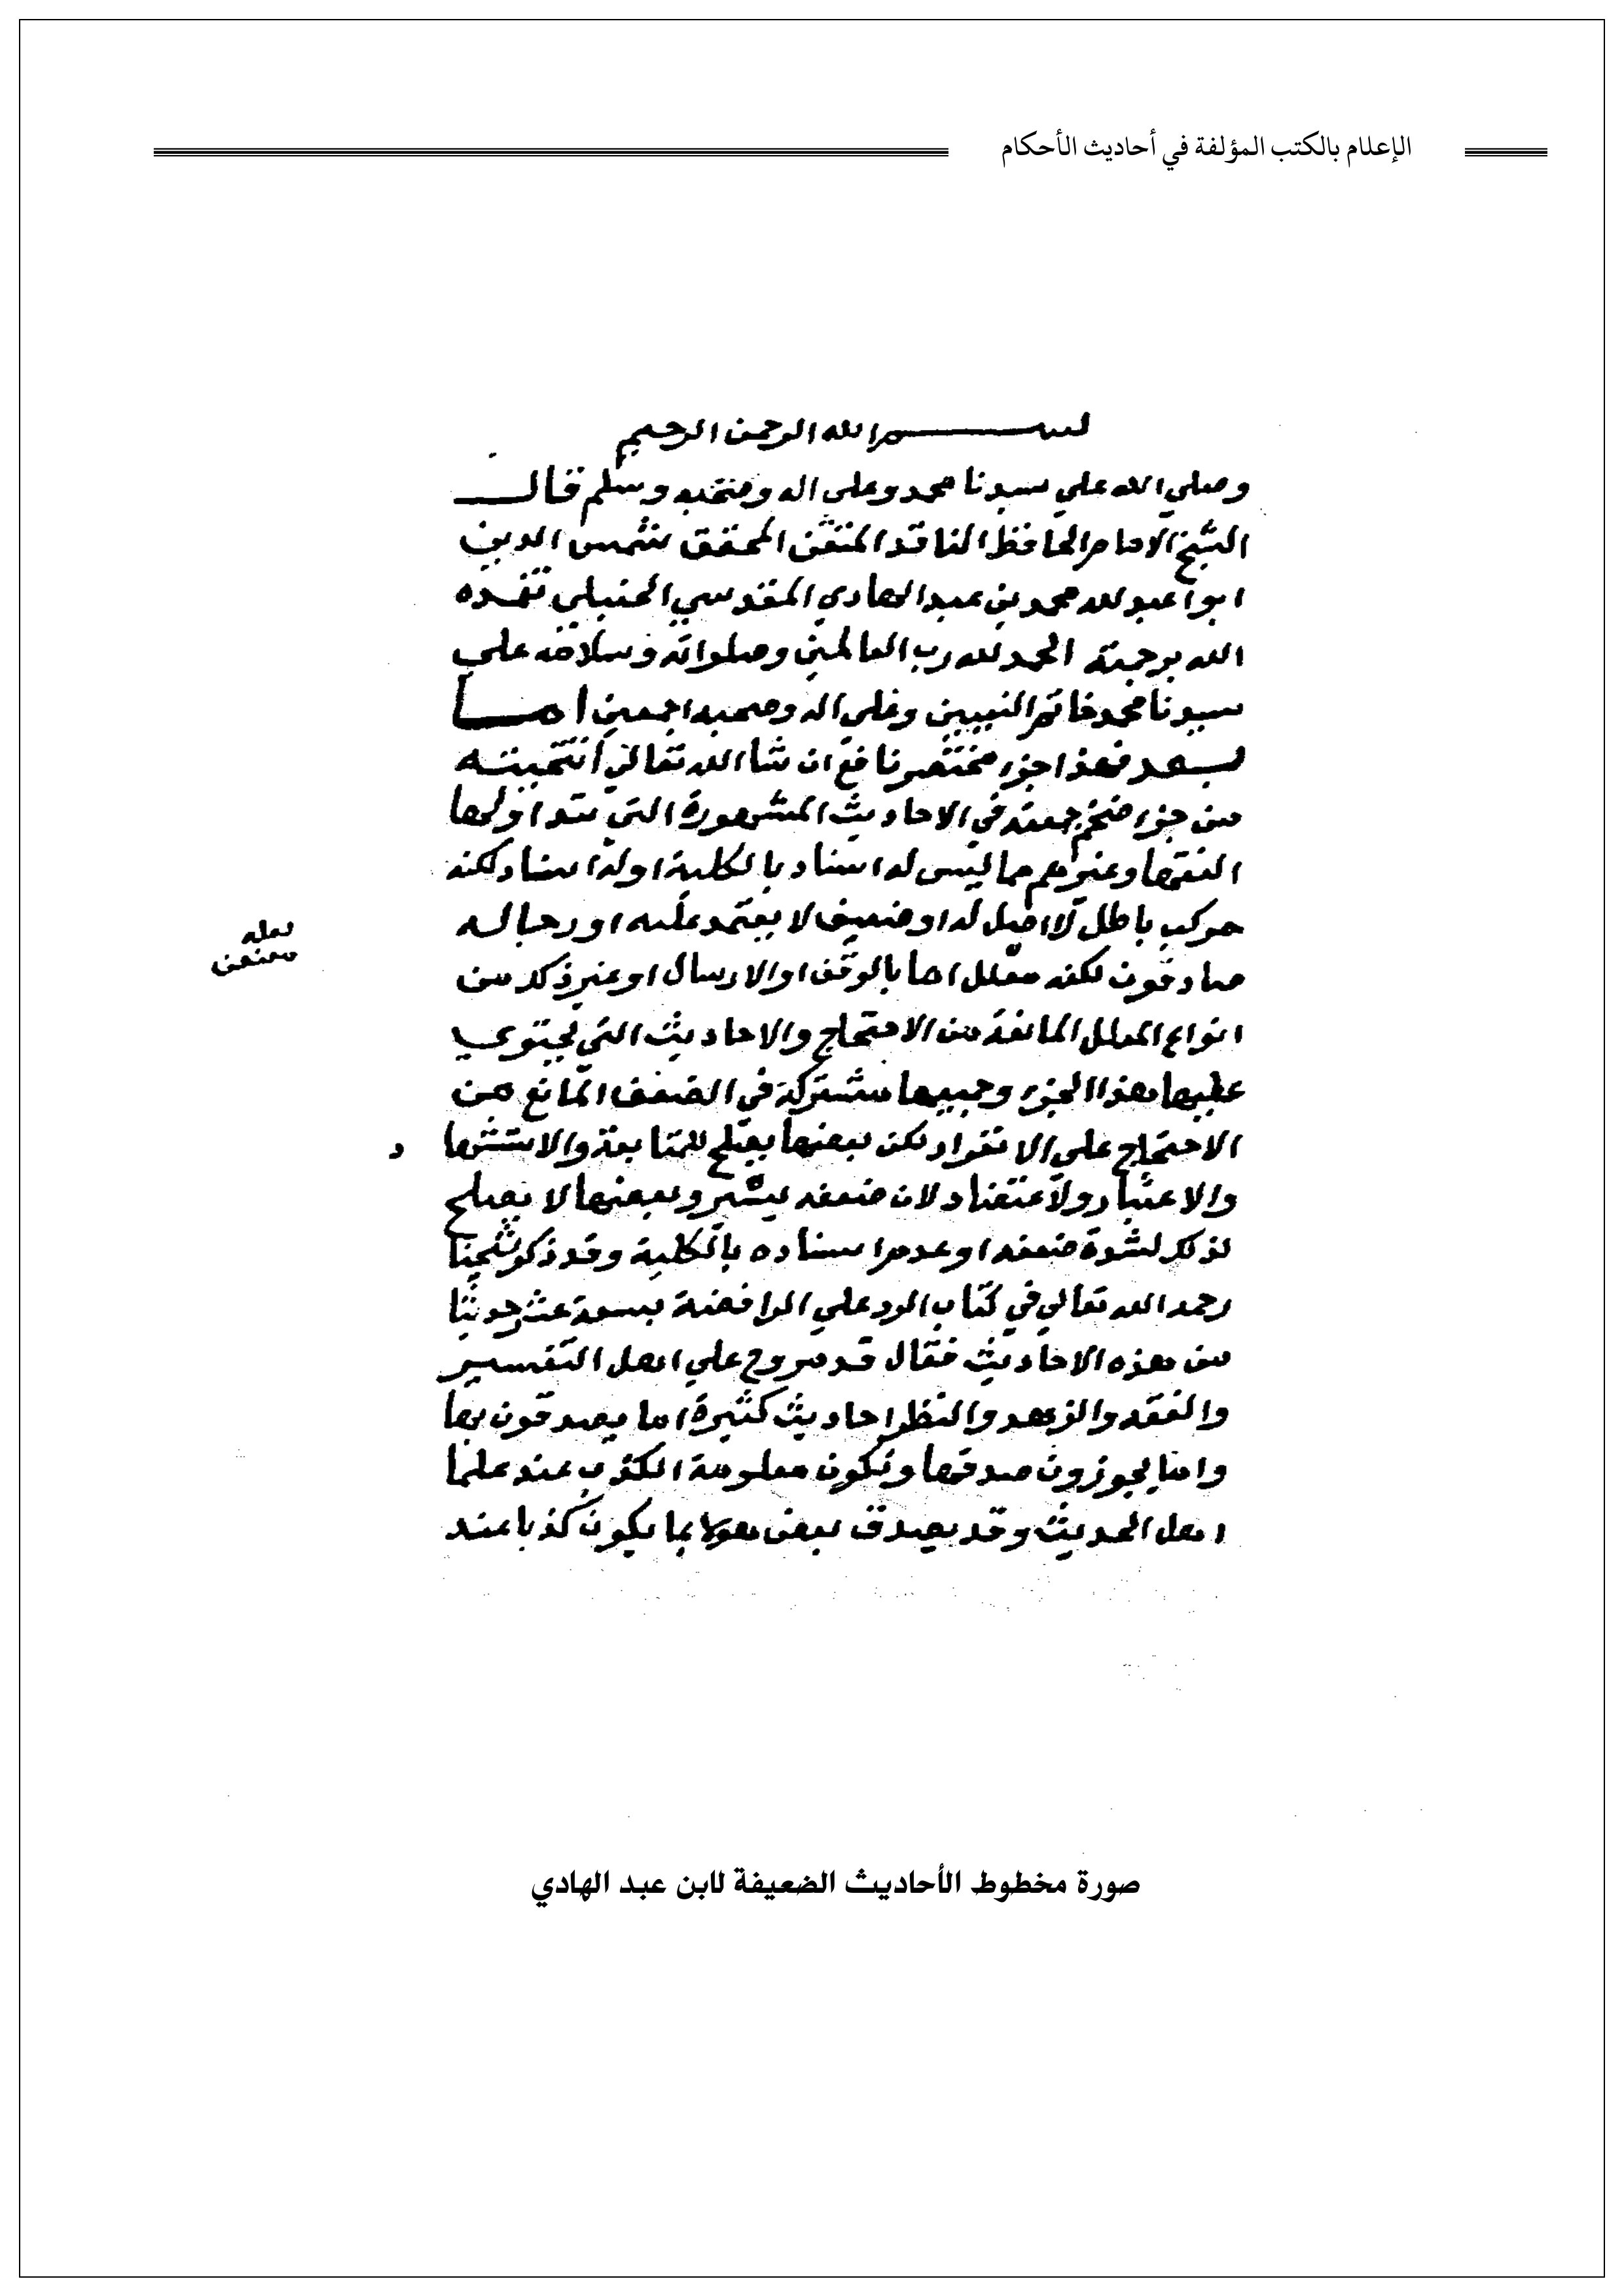 الإعلام بالكتب المؤلفة في أحاديث الأحكام
بسم الله الرحمن الرحيم
وصلي الله علي سيدنا محمد وعلى اله وصحبه وسلم قال
الشيخ الامام الحافظ الناقد المتقن المحقق شمس الدين
ابوا عبد الله محمد بن عبد الهادي المقدسي الحنبلي تغمده
الله برحمته الحمد لله رب العالمين وصلواته وسلامه علي
سيدنا محمد خاتم النبيين وعلي اله وصحبه اجمعين اما
بعد فهذا جزء مختصر نافع ان شا الله تعالي انتخبته
من جزء ضخم جمعته في الاحاديث المشهورة التي يتداولها
الفقها وغيرهم مما ليس له اسناد بالكلية او له اسناد لكنه
مركب باطل لا اصل له او ضعيف لا يعتمد عليه او رجاله
لعله
صادقون لكنه معلل اما بالوقف او الارسال او غير ذلك من
انواع العلل المانعة من الاحتجاج والاحاديث التي يحتوي
عليها هذا الجزء وجميعها مشتركة في الضعف المانع من
الاحتجاج علي الانفراد لكن بعضها يصلح للمتابعة والاستشها د
والاعتبار ولاعتضاد لان ضعفه يسير وبعضها لا يصلح
لذلك لشدة ضعفه او عدم اسناده بالكلية وقد ذكر شيخنا
رحمه الله تعالي في كتاب الرد علي الرافضة بسبعة عشر حديثا
من هذه الاحاديث فقال قد يروج علي اهل التفسير
والفقه والزهد والنظر احاديث كثيرة اما يصدقون بها
واما يجوزون صدقها وتكون معلومة الكذب عند علما
اهل الحديث وقد يصدق بعض هولا بما يكون كذبا عند
صورة مخطوط الأحاديث الضعيفة لابن عبد الهادي